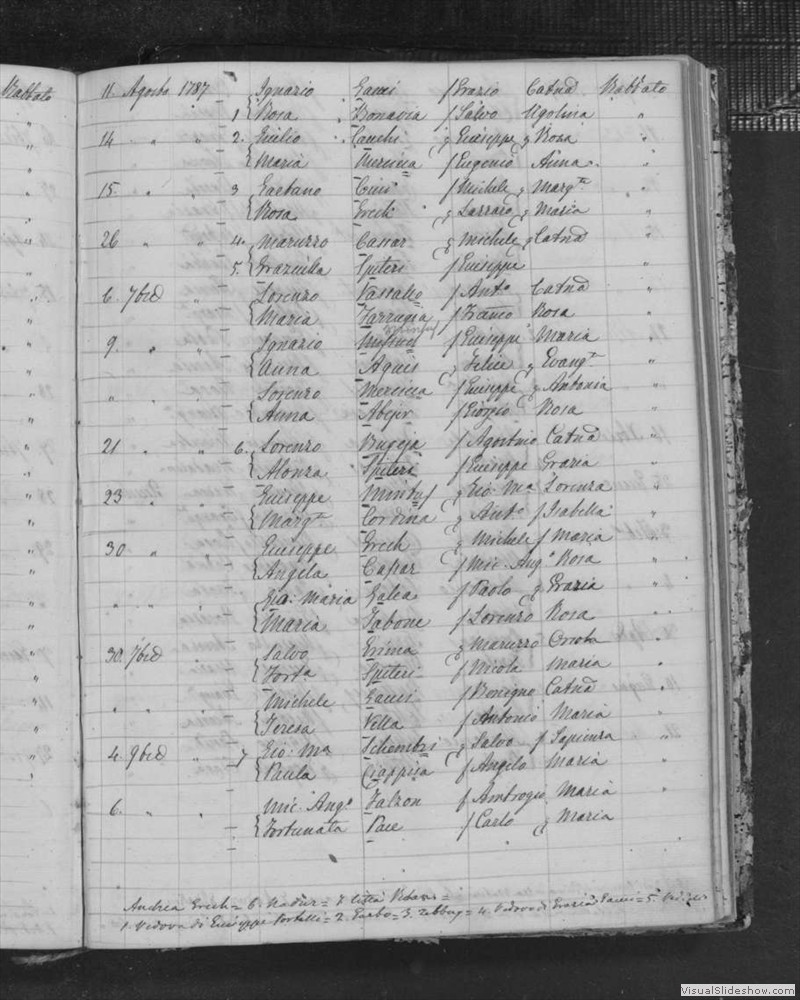 Rabbato
11 Agosto 1787 Ignazio Gauci f Grazio Catnd Rabbato
1 Rosa Bonavia f Salvo Ugolina "
14 " " 2. Giulio Cauchi g Giuseppe g Rosa "
Maria Mercieca f Eugenio Anna "
15. " " 3 Gaetano f Michele g Margta
Rosa Grech g Lazzaro g Maria "
26 " " 4. Maruzzo Cassar g Michele g Catnd "
5. Graziulla Spiteri f Giuseppe "
6. 7bre " Lorenzo Vassallo f Anto Catnd "
Maria Farrugia f Franco Rosa "
9. " " Ignazio f Giuseppe Maria "
Anna Agius g Felice g Evangta "
" " " Lorenzo Mercieca f Giuseppe g Antonia "
Anna Abejer f Giorgio Rosa "
21 " " 6. Lorenzo Bugeja f Agostino Catnd "
Alonza Spiteri f Giuseppe Grazia "
23 " " Giuseppe Mintuf g Gio: Ma Lorenza "
Margta Cordina g Anto f Isabella "
30 " Giuseppe Grech g Michele f Maria "
Angela Cassar f Mic. Ango Rosa "
" " " Gio: Maria Galea f Paolo g Grazia "
Maria Zabone f Lorenzo Rosa "
30. 7bre Salvo Grima g Maruzzo "
Forta Spiteri f Nicola Maria "
" " " Michele Gauci f Benigno Catnd "
Teresa Vella f Antonio Maria "
4. 9bre " 7 Gio: Ma Schembri g Salvo f Sapienza "
Paula Ciappisa f Angelo Maria "
6. " " Mic: Ango Falzon f Ambrogio Maria "
Fortunata Pace f Carlo g Maria
Andrea Grech = 6. Nadur = 7 Città
1. Vedova di Giuseppe Portelli = 2. Garbo = 3. Zebbug = 4. Vedova di Grazio Gauci = 5.
VisualSlideshow.com